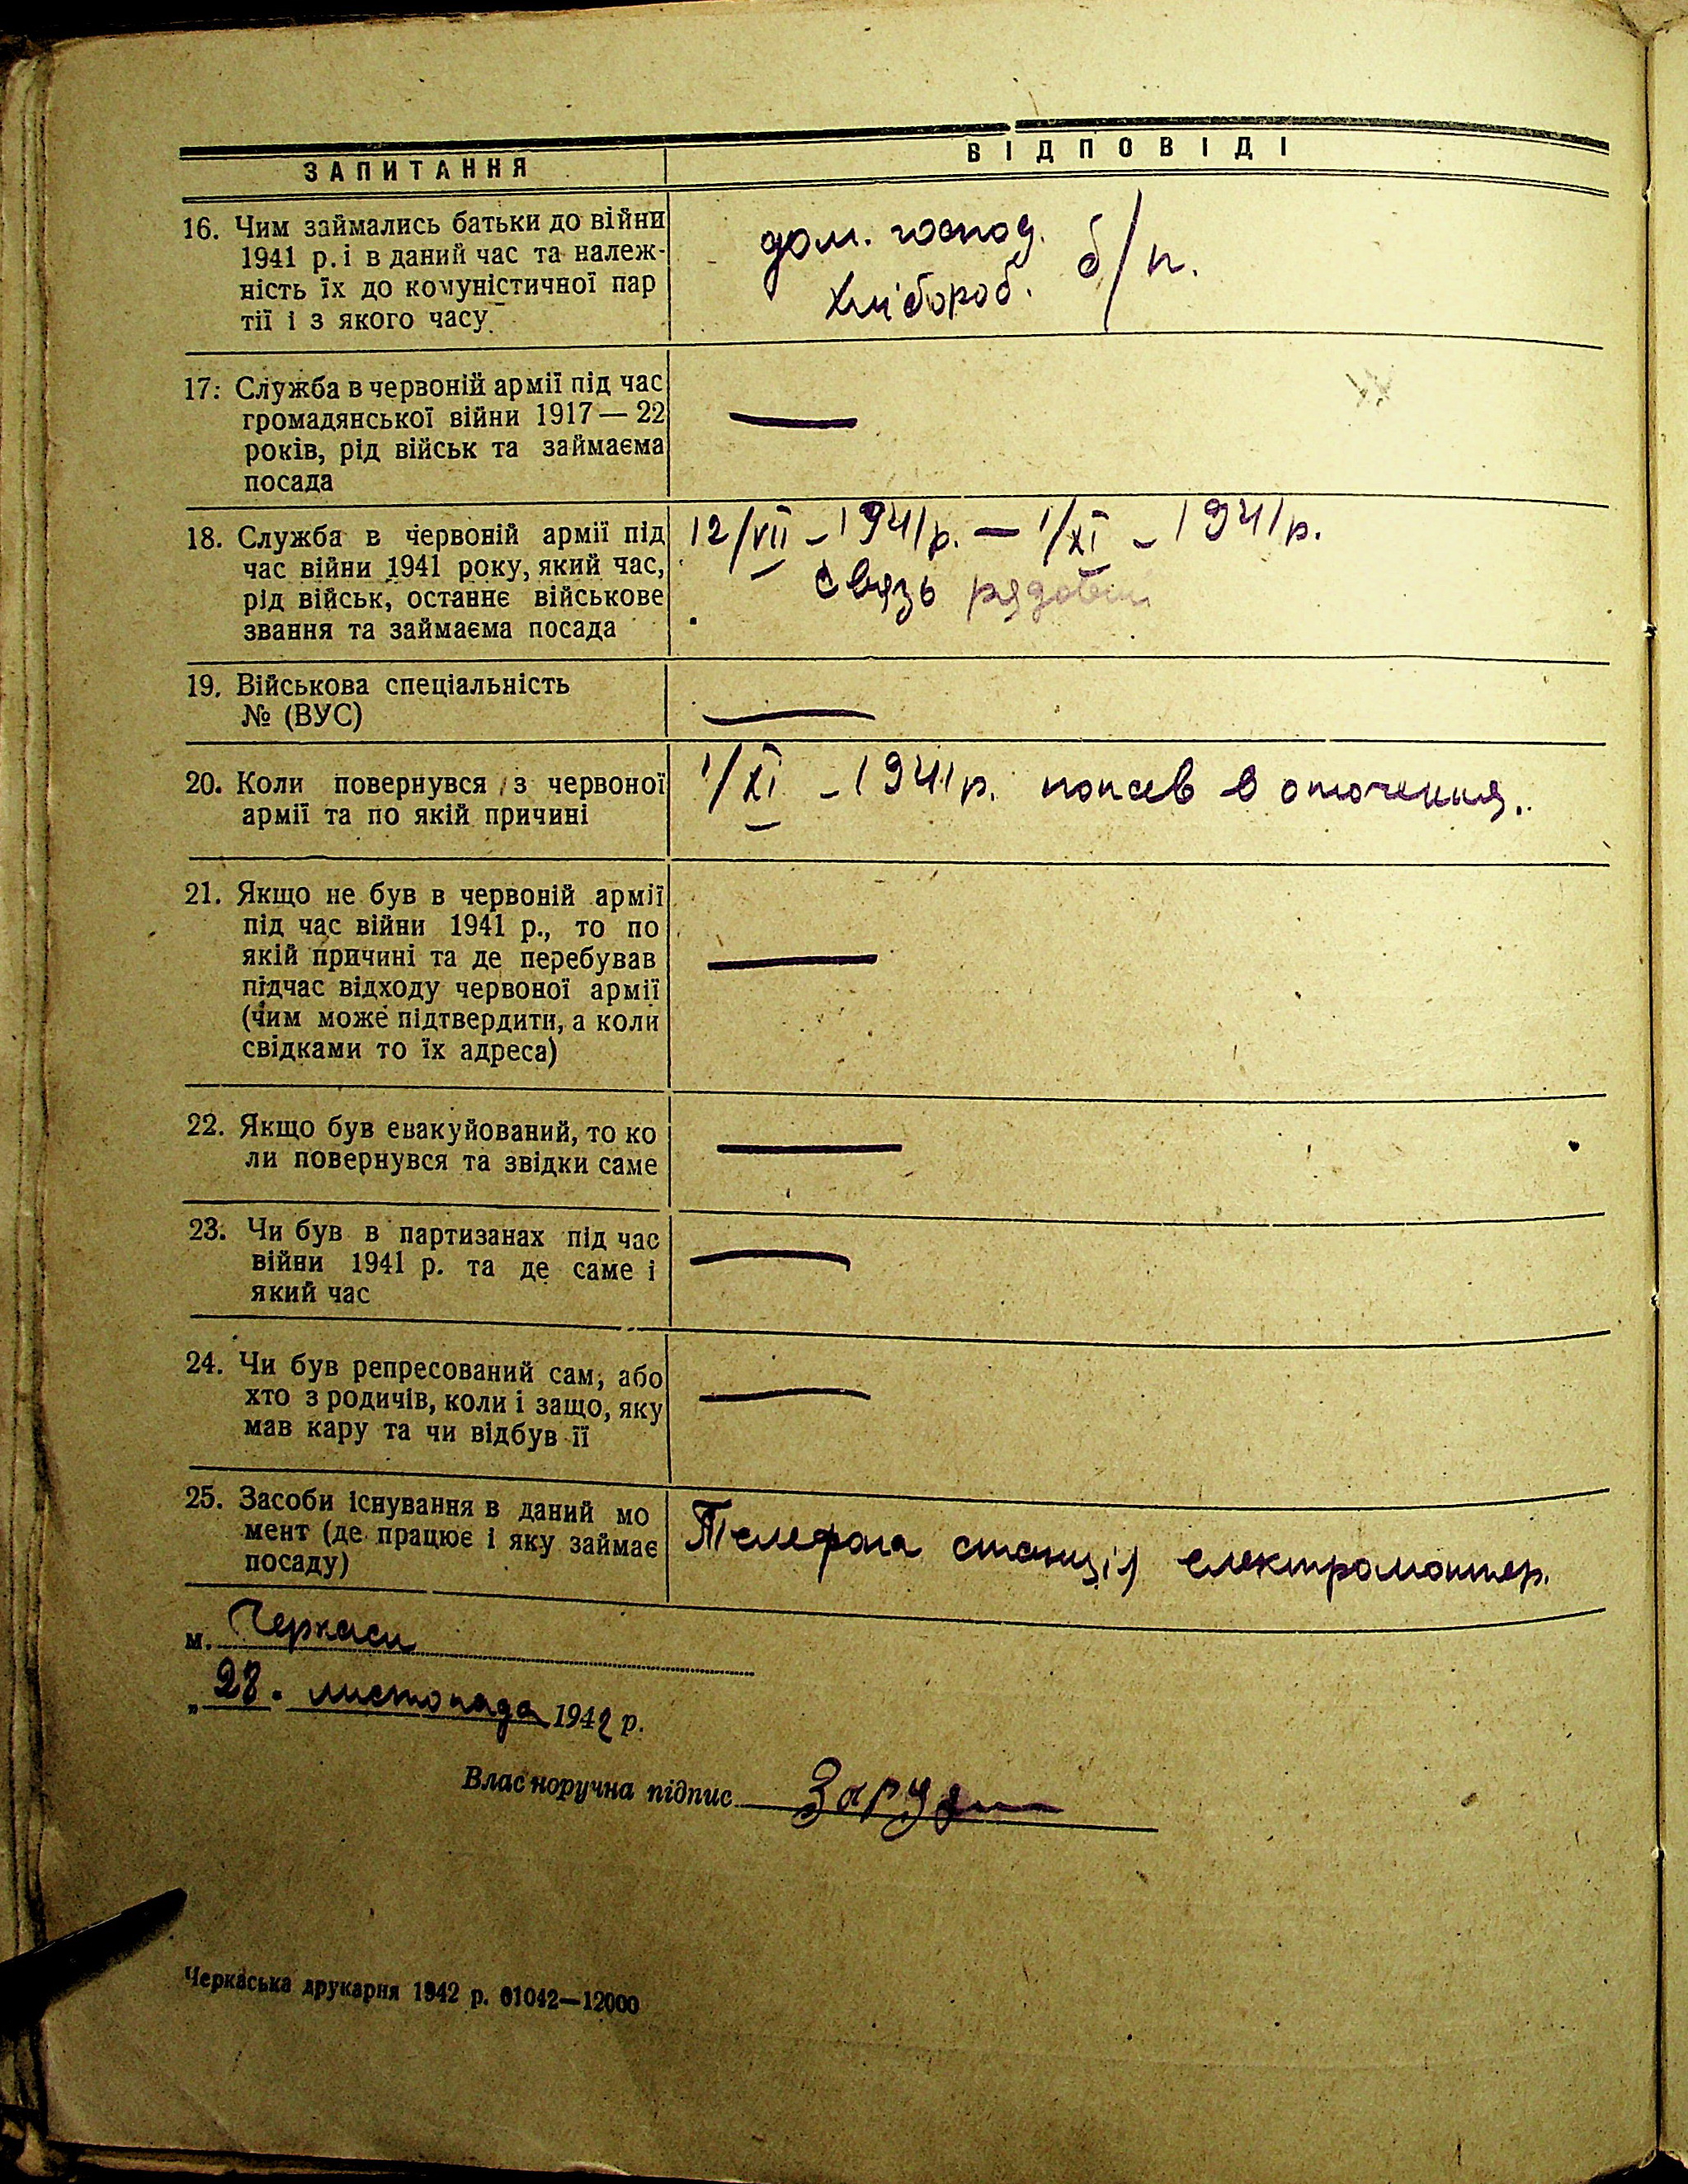 ЗАПИТАННЯ
ВІДПОВІДІ
16. Чим займались батьки до війни
1941 р. і в даний час та належ-
ність їх до комуністичної пар
тії і з якого часу
дом. господ.
хлібороб. б/п.
17. Служба в червоній армії під час
громадянської війни 1917 — 22
років, рід військ та займаєма
посада
—
18. Служба в червоній армії під
час війни 1941 року, який час,
рід військ, останнє військове
звання та займаєма посада
12/VII – 1941 р. — 1/XI – 1941 р.
связь рядовий
19. Військова спеціальність
№ (ВУС)
—
20. Коли повернувся з червоної
армії та по якій причині
1/XI – 1941 р. попав в оточення.
21. Якщо не був в червоній армії
під час війни 1941 р., то по
якій причині та де перебував
підчас відходу червоної армії
(чим може підтвердити, а коли
свідками то їх адреса)
—
22. Якщо був евакуйований, то ко
ли повернувся та звідки саме
—
23. Чи був в партизанах під час
війни 1941 р. та де саме і
який час
—
24. Чи був репресований сам, або
хто з родичів, коли і защо, яку
мав кару та чи відбув її
—
25. Засоби існування в даний мо
мент (де працює і яку займає
посаду)
Телефона станція електромонтер.
м. Черкаси
„ 28. листопада 1942 р.
Власноручна підпис
Черкаська друкарня 1942 р. 01042—12000